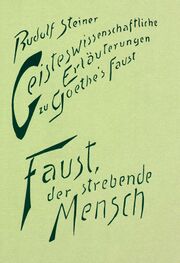 Rudolf Steiner
Geisteswissenschaftliche
Erläuterungen
zu Goethe's Faust
Faust,
der strebende
Mensch